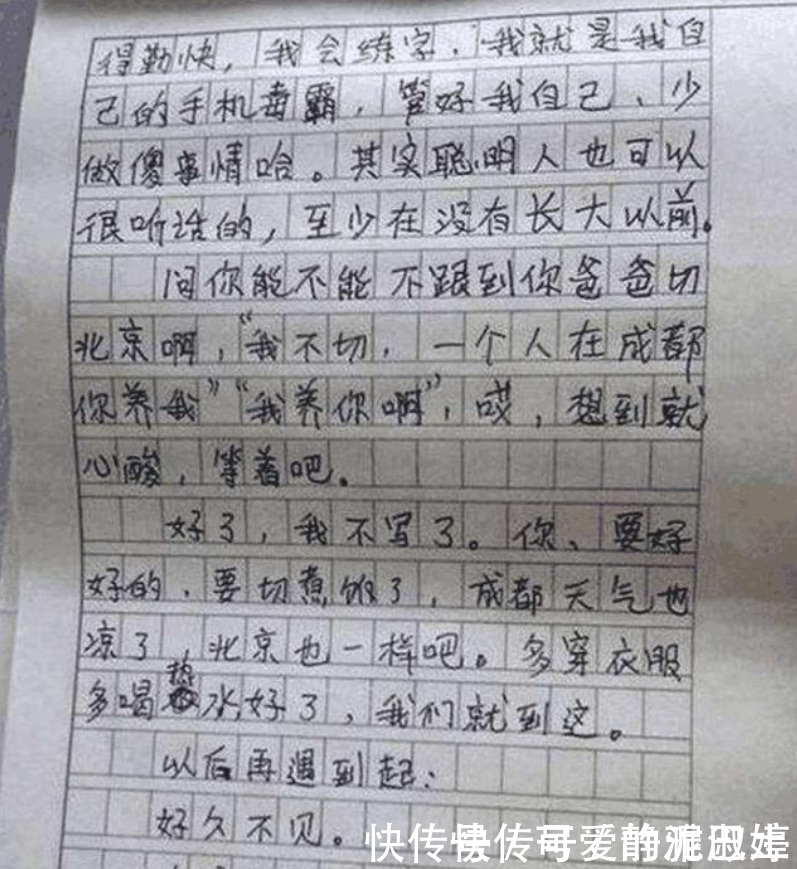 得勤快，我会练字，我就是我自
己的手机毒霸，管好我自己、少
做傻事情哈。其实聪明人也可以
很听话的，至少在没有长大以前。
问你能不能不跟到你爸爸切
北京啊，“我不切，一个人在成都
你养我”“我养你啊”，哎，想到就
心酸，等着吧。
好了，我不写了。你、要好
好的，要切煮饭了，成都天气也
凉了，北京也一样吧。多穿衣服
多喝热水好了，我们就到这。
以后再遇到起：
好久不见。
快传